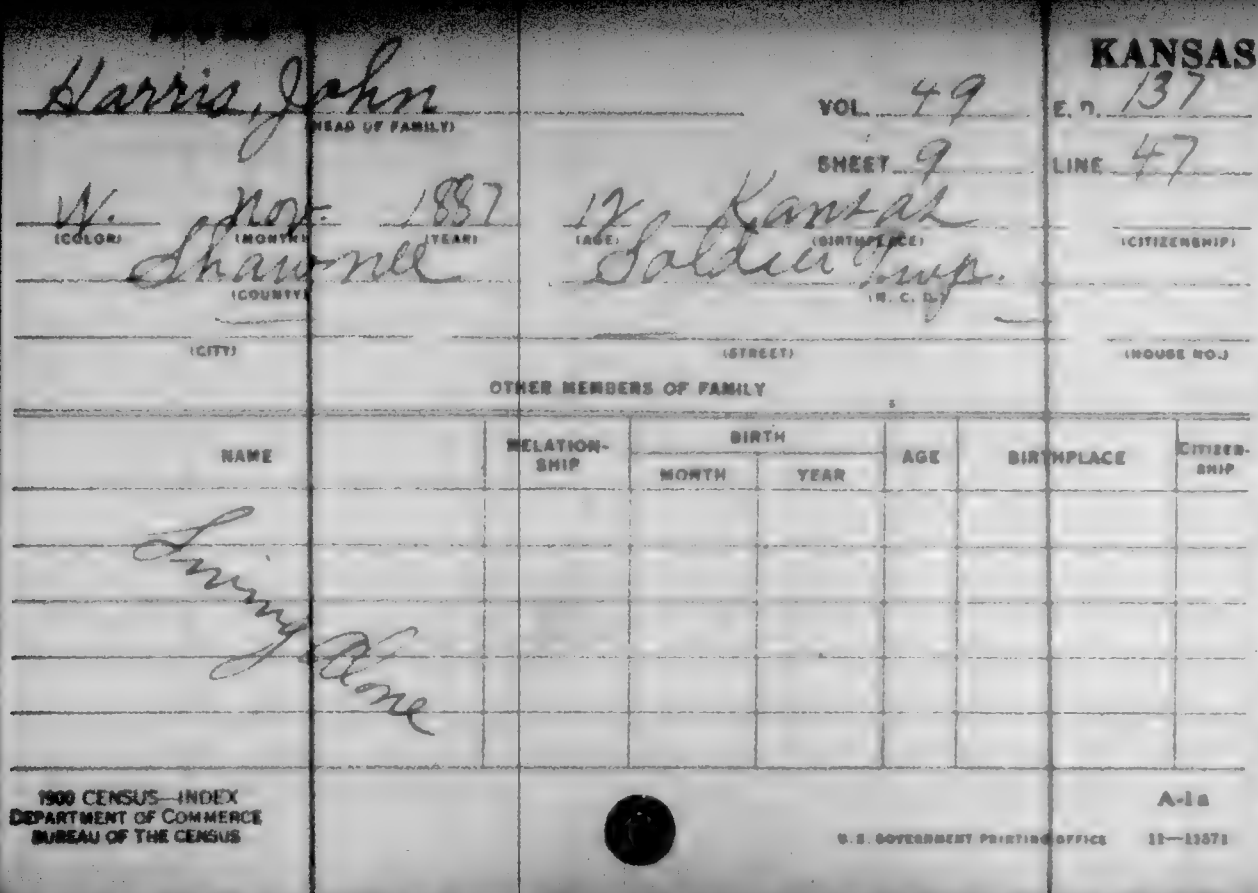 KANSAS
Harris, John
(HEAD OF FAMILY)
VOL. 49 E. D. 137
SHEET 9 LINE 47
W. Nov. 1887 12 Kansas
(COLOR) (MONTH) (YEAR) (AGE) (BIRTHPLACE) (CITIZENSHIP)
Shawnee Soldier Twp.
(COUNTY) (M. C. D.)
(CITY) (STREET) (HOUSE NO.)
OTHER MEMBERS OF FAMILY
NAME RELATION-SHIP BIRTH MONTH YEAR AGE BIRTHPLACE CITIZEN-SHIP
Living Alone
1900 CENSUS—INDEX A-1a
DEPARTMENT OF COMMERCE
BUREAU OF THE CENSUS U.S. GOVERNMENT PRINTING OFFICE 11—11571